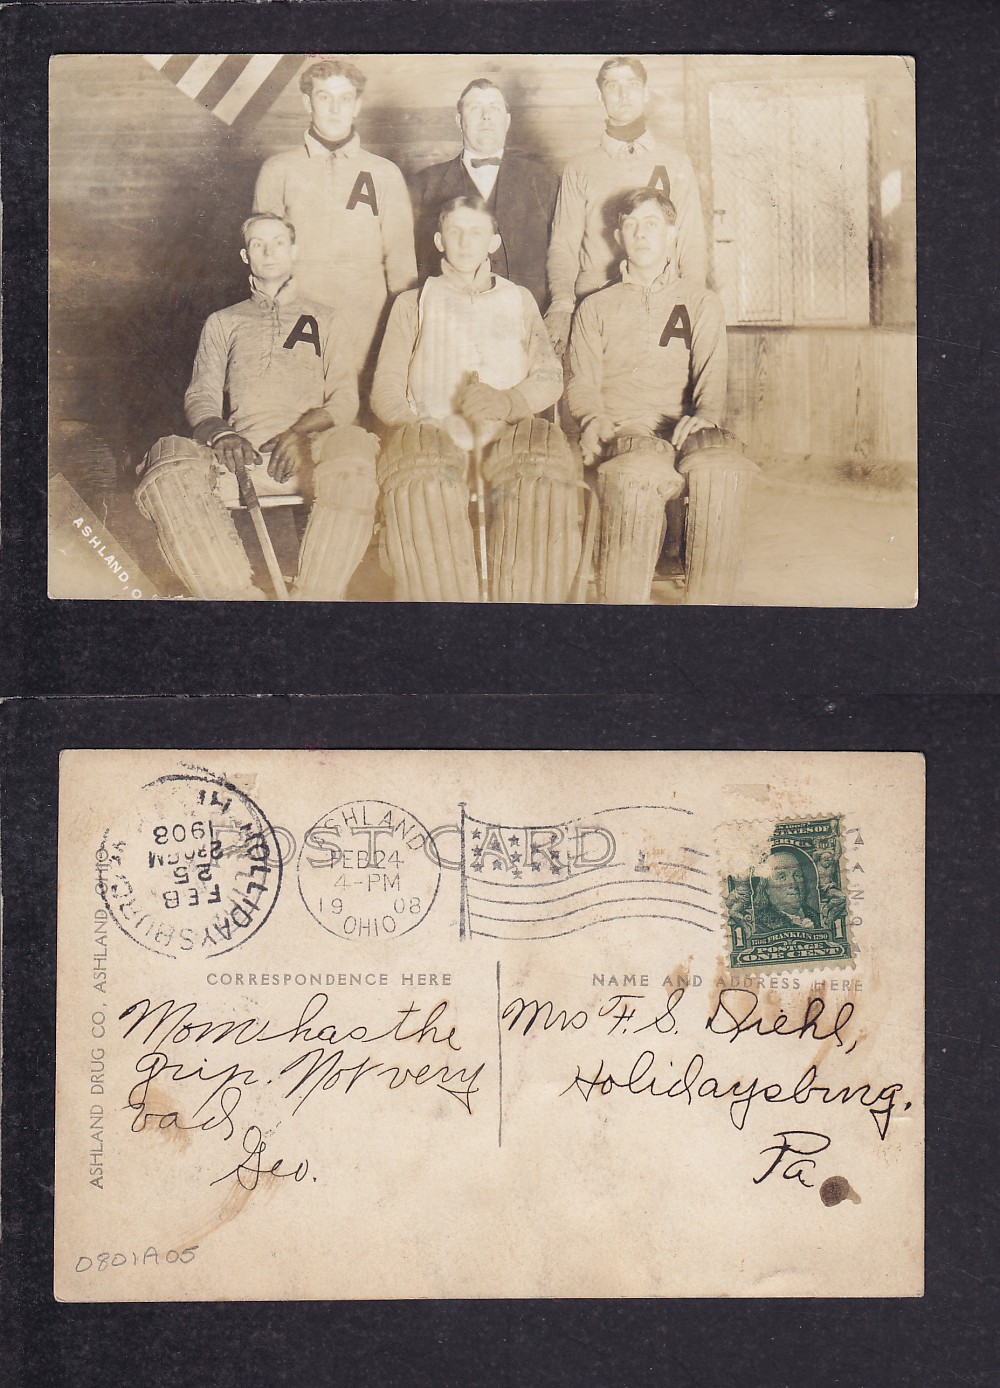 A
A
A
A
ASHLAND, O
POST CARD
HOLLIDAYSBURG
FEB
25
1908
ASHLAND
FEB 24
4-PM
19 08
OHIO
STATES OF
1706 FRANKLIN 1790
1 POSTAGE 1
ONE CENT
CORRESPONDENCE HERE
NAME AND ADDRESS HERE
ASHLAND DRUG CO., ASHLAND, OHIO
Mom has the
grip. Not very
bad,
Geo.
Mrs F. S. Diehl,
Holidaysburg.
Pa.
0801A05